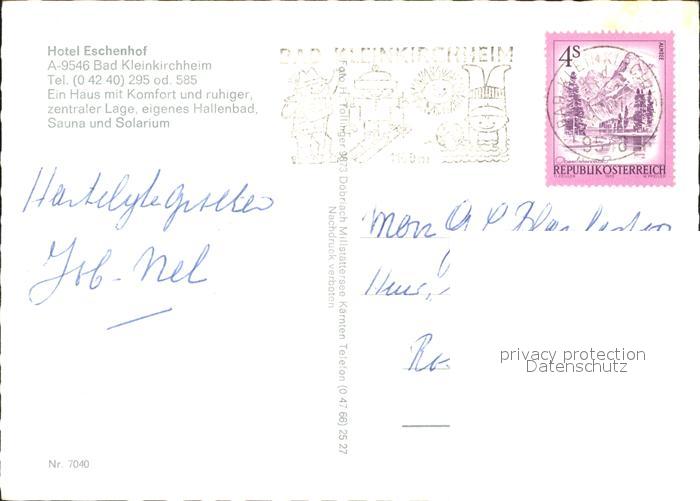 Hotel Eschenhof
A-9546 Bad Kleinkirchheim
Tel. (0 42 40) 295 od. 585
Ein Haus mit Komfort und ruhiger,
zentraler Lage, eigenes Hallenbad,
Sauna und Solarium
BAD KLEINKIRCHHEIM
4S
ALMSEE
REPUBLIK ÖSTERREICH
Hartelyke groeten
Job - Nel
Foto H. Tollinger 9873 Döbriach Millstättersee Kärnten Telefon (0 47 66) 25 27
Nachdruck verboten
privacy protection
Datenschutz
Nr. 7040